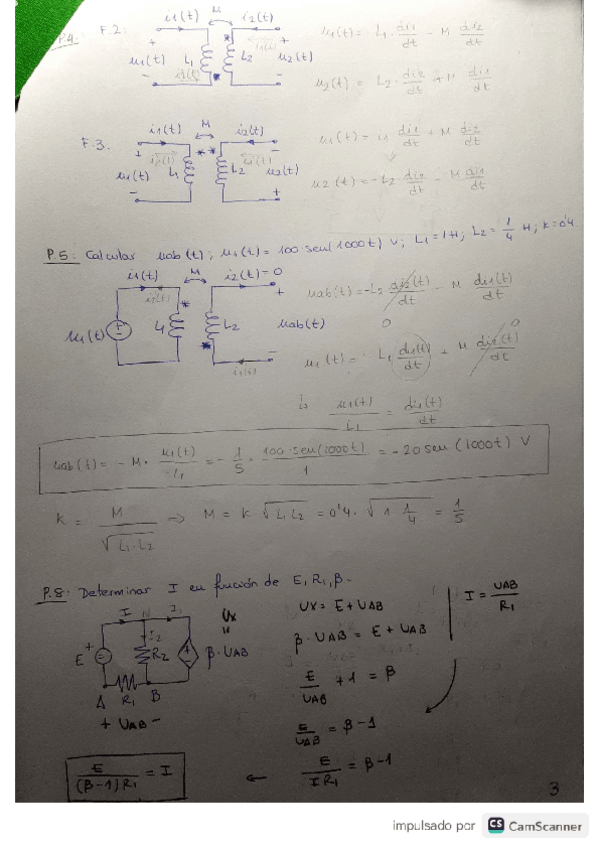 P.4. F.2: i₁(t) M i₂(t)
+ L₁ L₂ +
u₁(t) u₂(t)
- -
u₁(t) = L₁ · di₁/dt - M di₂/dt
u₂(t) = L₂ · di₂/dt + M di₁/dt
F.3. i₁(t) M i₂(t)
+ * * -
u₁(t) L₁ L₂ u₂(t)
- +
di₁/dt + M di₂/dt
u₂(t) = -L₂ · di₂/dt - M di₁/dt
P.5: Calcular uab(t); u₁(t) = 100 sen(1000t) V; L₁ = 1H; L₂ = 1/4 H; k = 0'4
i₁(t) M i₂(t) = 0
u₁(t) L₁ L₂ uab(t)
+ -
uab(t) = -L₂ di₂(t)/dt - M di₁(t)/dt
0
u₁(t) = L₁ di₁(t)/dt + M di₂(t)/dt 0
u₁(t)/L₁ = di₁(t)/dt
uab(t) = - M · u₁(t)/-L₁ = - 1/5 · 100 · sen(1000t)/1 = - 20 sen (1000t) V
k = M/√L₁·L₂ => M = k · √L₁L₂ = 0'4 · √1 · 1/4 = 1/5
P.8: Determinar I en función de E, R₁, β.
I I₁ Ux
"
E + I₂ R₂ β · UAB
A R₁ B
+ UAB -
UX = E + UAB
β · UAB = E + UAB
E/UAB + 1 = β
E/UAB = β - 1
E/I R₁ = β - 1
I = UAB/R₁
E/(β-1)R₁ = I
3
impulsado por CS CamScanner